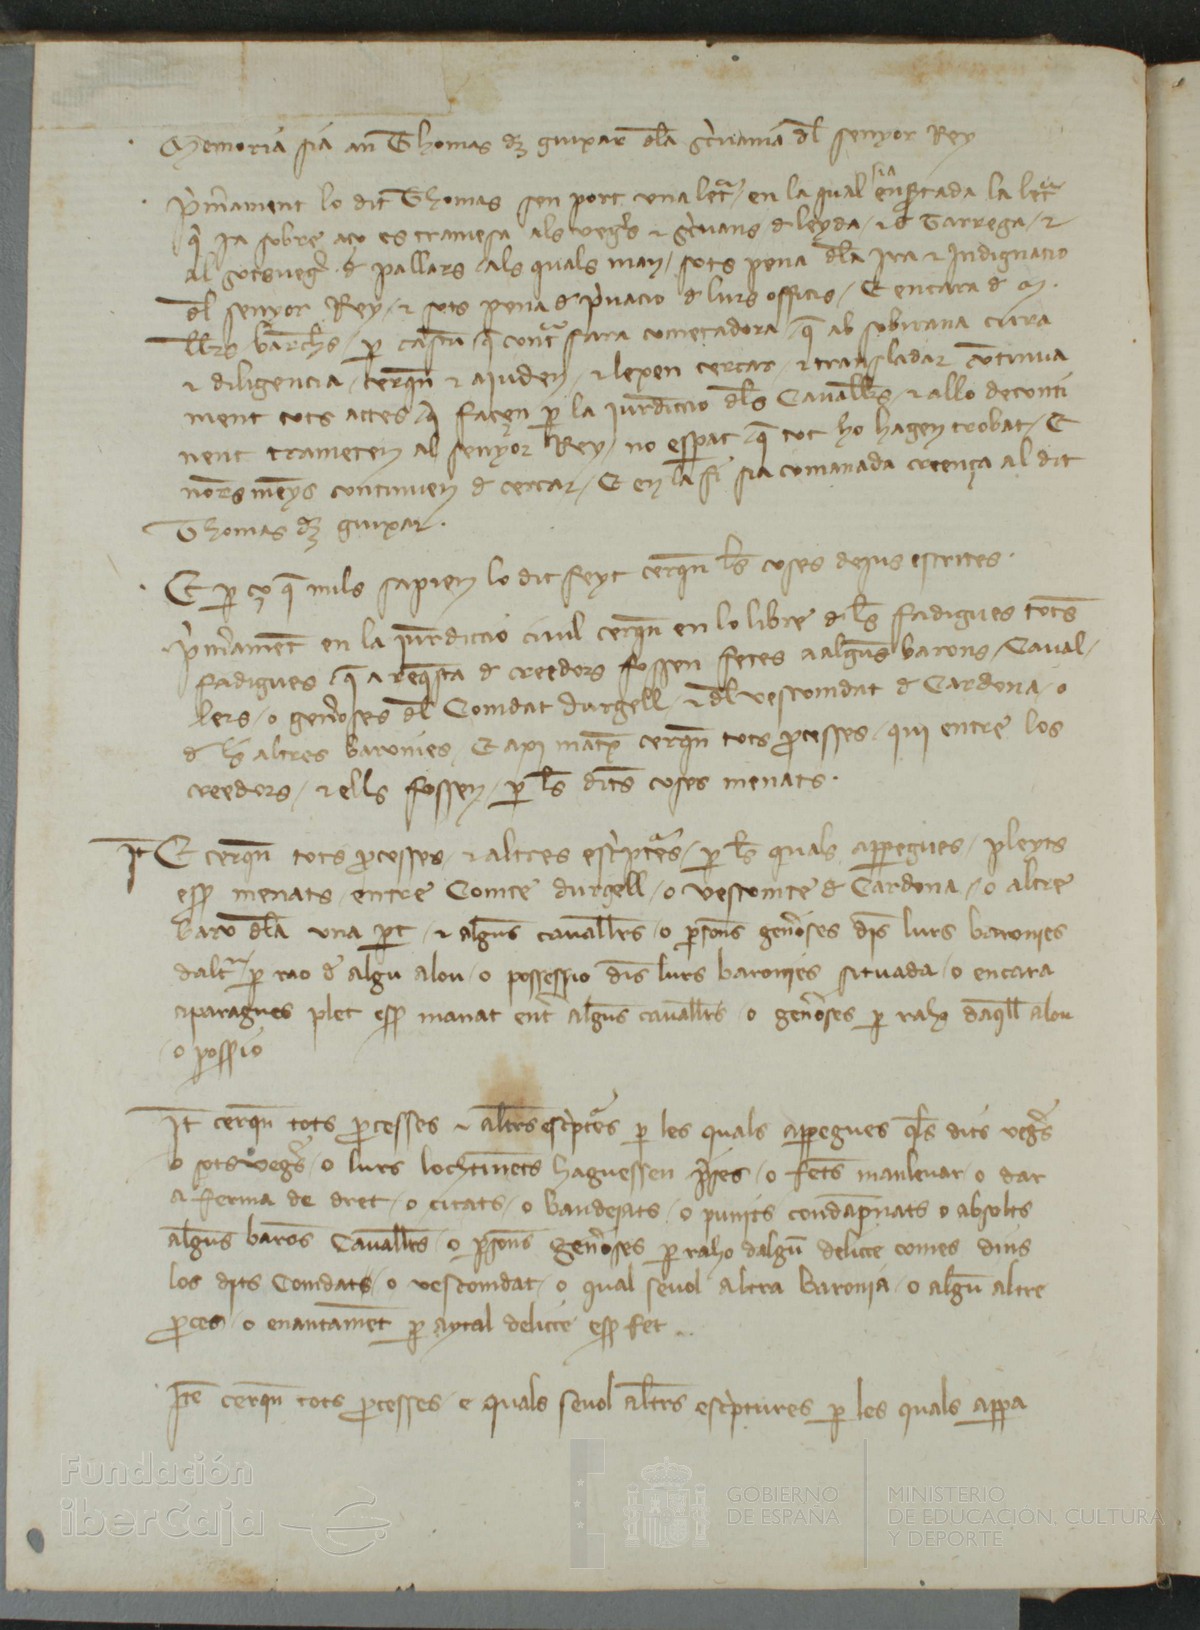 Memoria sia an Thomas dez guixar dla scrivania dl senyor Rey
primament lo dit Thomas sen port una letra en la qual sia encertada la letra
q ja sobre aço es tramesa als vegrs & scrivans d leyda & d Tarrega &
al sotsvegr d pallars als quals man sots pena dla ira & indignacio
dl senyor Rey & sots pena d privacio d lurs officis Et encara d M.
llrs barchs p cascu q contra fara cometadora q ab sobirana cura
& diligencia cerqn & ajuden & lexen cercar & transladar continua
ment tots actes q façen p la jurdiccio dls Cavallrs & allo deconti
nent trameten al senyor Rey no esperat q tot ho hagen trobat Et
nors meys continuen d cercar Et en la fi sia comanada creença al dit
Thomas dez guixar.
Et p ço q mils sapien lo dit feyt cerqn ls coses dejus escrites.
primament en la jurdiccio civil cerqn en lo libre d ls fadigues totes
fadigues q a reqsta d creedors fossen fetes a alguns barons Caval
lers o genroses dl Comdat durgell & dl vescomdat d Cardona o
d ls altres baronies Et axi matex cerqn tots pcesses qui entre los
creedors & ells fossen p ls dits coses menats.
It Et cerqn tots pcesses & altres escriptures p ls quals appegues pleyts
esser menats entre Comte durgell o vescomte d Cardona o altre
baro dla una pt & alguns cavallrs o psones genroses dis lurs baronies
daltra p rao d algu alou o possessio dis lurs baronies situada o encara
aparagues plet esser manat entr alguns cavallrs o genroses p raho daqll alou
o possio
It cerqn tots pcesses & altrs escriptures p les quals appegues qls dits vegrs
o sotsvegrs o lurs lochtinents haguessen preses o fets manlevar o dar
a ferma de dret o citats o bandejats o punits condampnats o absolts
alguns barons Cavallrs o psones genroses p raho dalgu delicte comes dins
los dits Comdats o vescomdat o qual sevol altra baronia o algun altre
pces o enantament p aytal delicte esser fet
Ite cerqn tots pcesses e quals sevol altrs escriptures p les quals appa
Fundación
iberCaja
GOBIERNO
DE ESPAÑA
MINISTERIO
DE EDUCACIÓN, CULTURA
Y DEPORTE